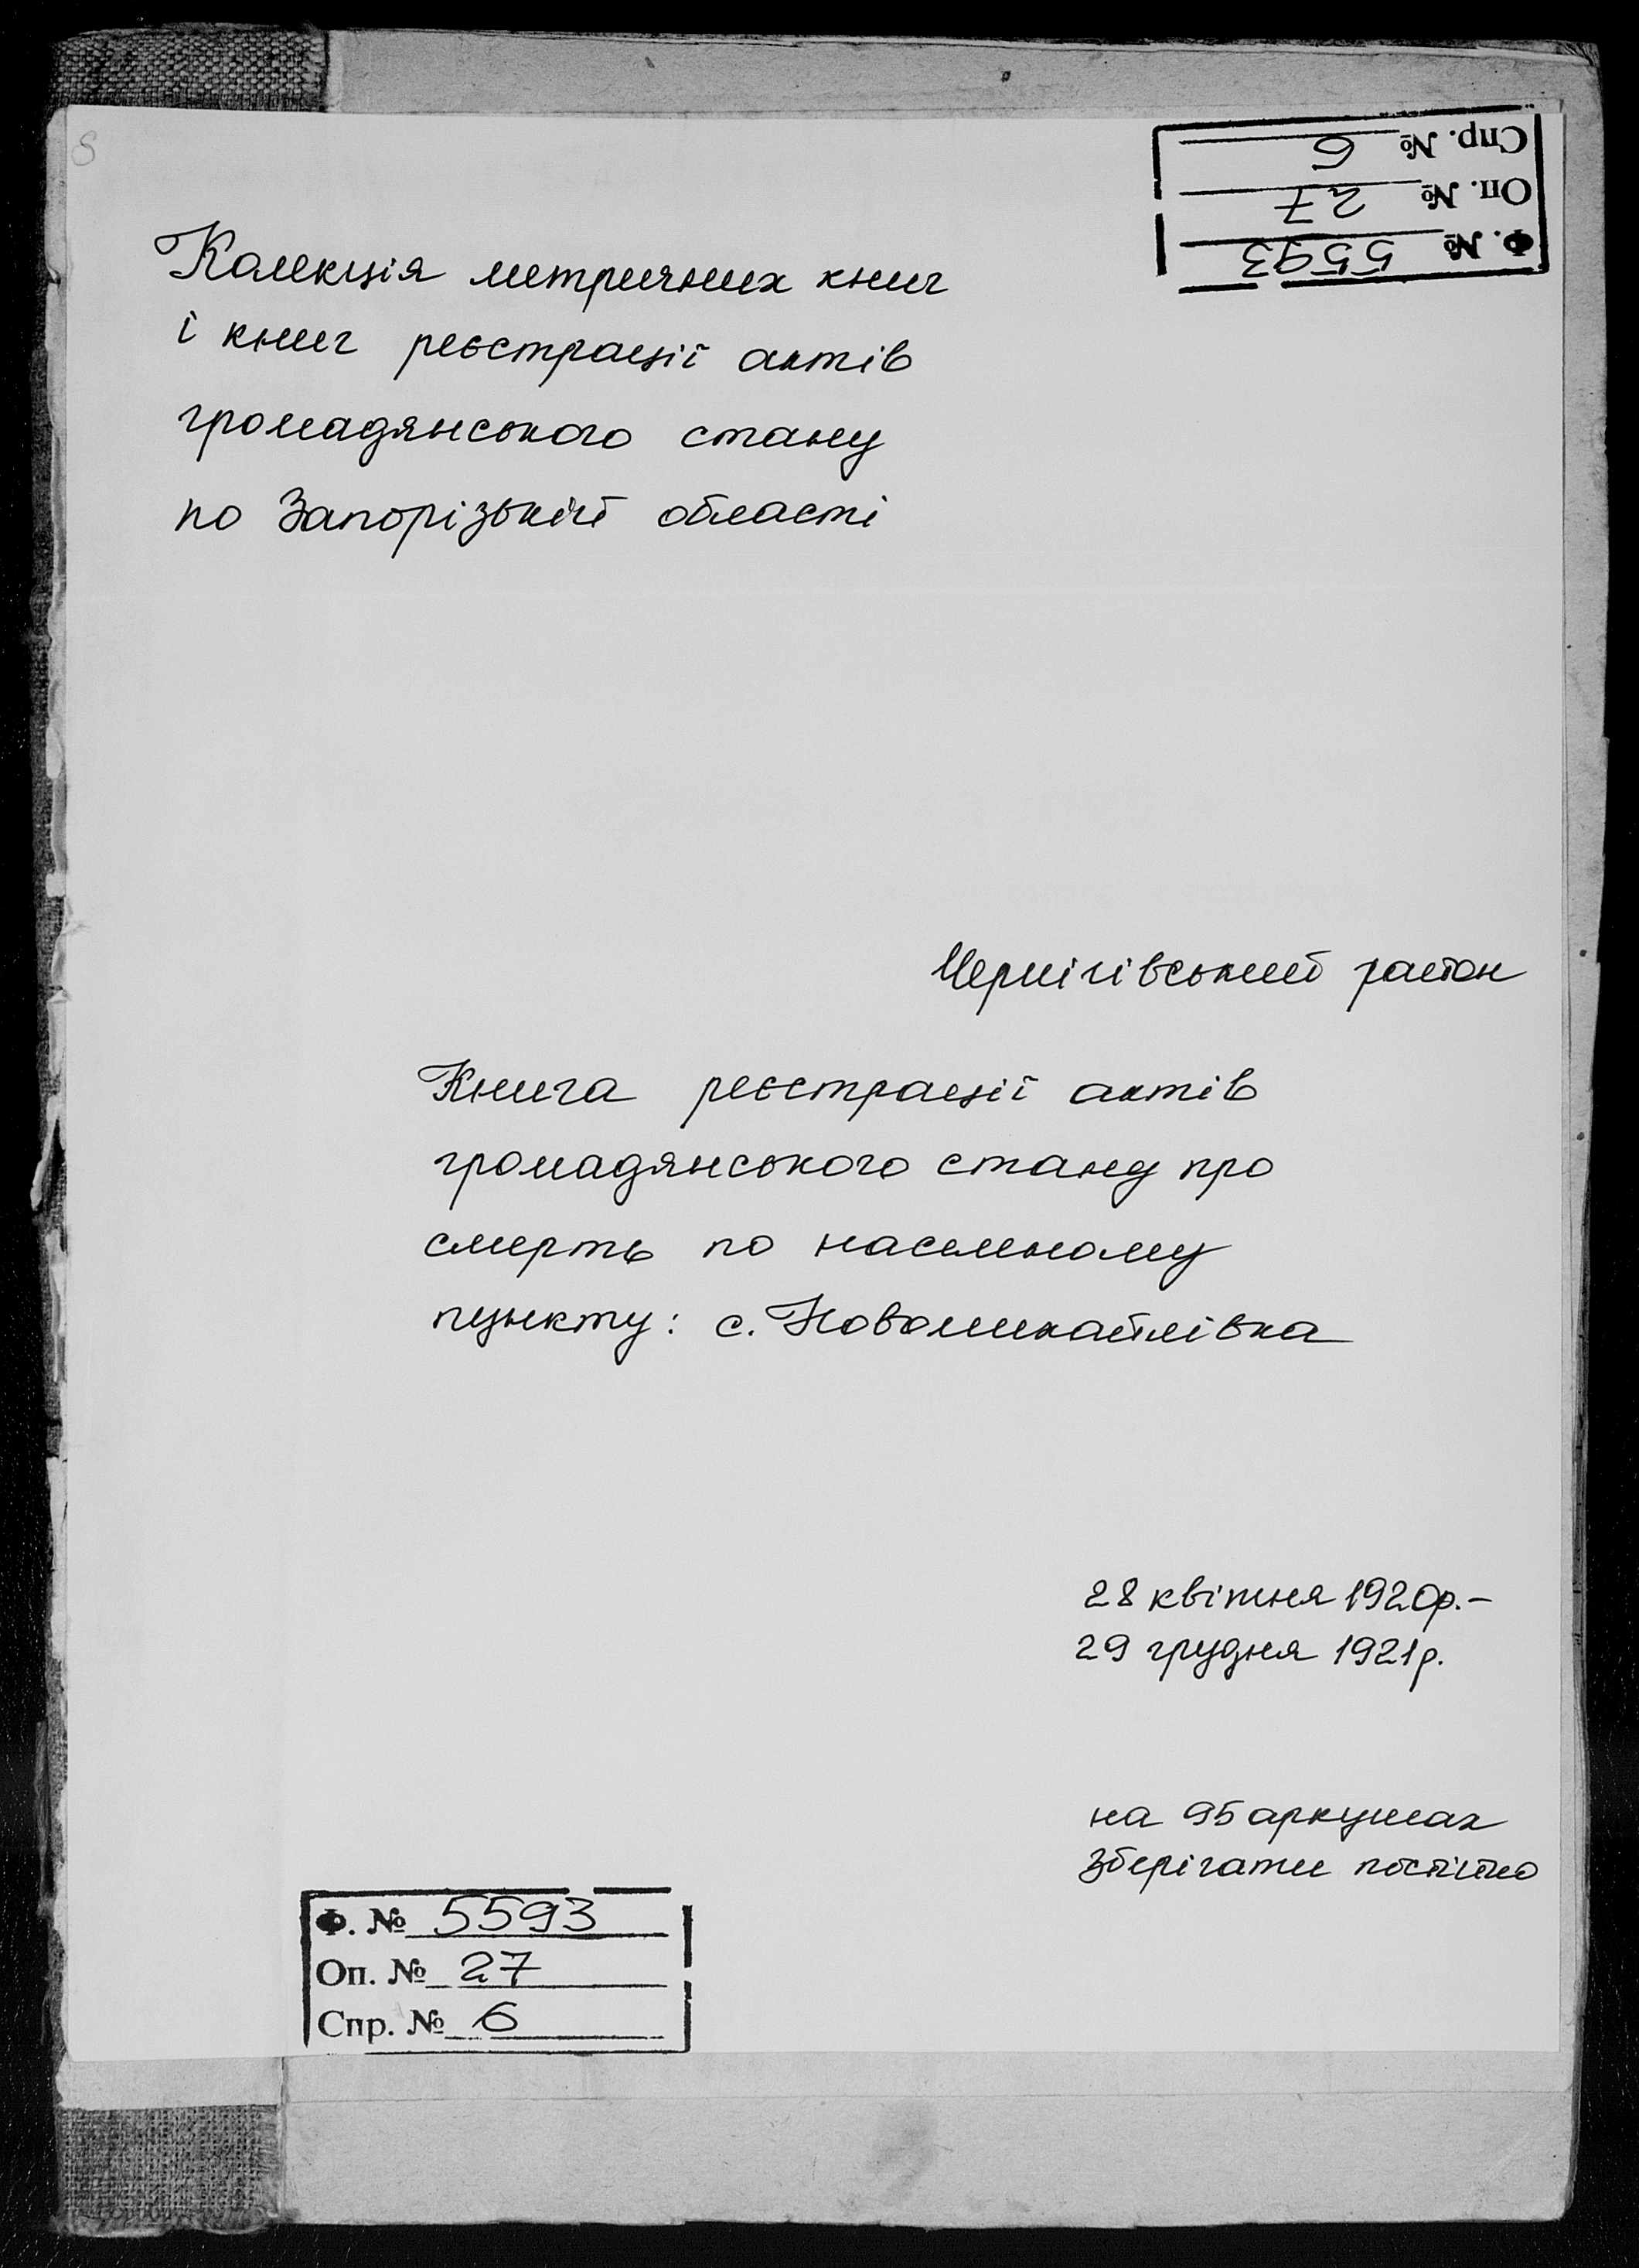 Спр. № 6
Оп. № 27
Ф. № 5593
Колекція метричних книг
і книг реєстрації актів
громадянського стану
по Запорізькій області
Чернігівський район
Книга реєстрації актів
громадянського стану про
смерть по населеному
пункту: с. Новомихайлівка
28 квітня 1920р.–
29 грудня 1921р.
на 95 аркушах
зберігати постійно
Ф. № 5593
Оп. № 27
Спр. № 6